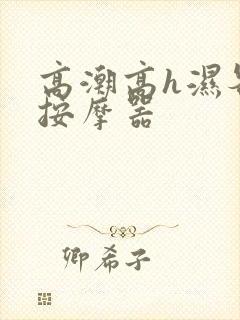 高潮高h濕
按摩器
卿希子